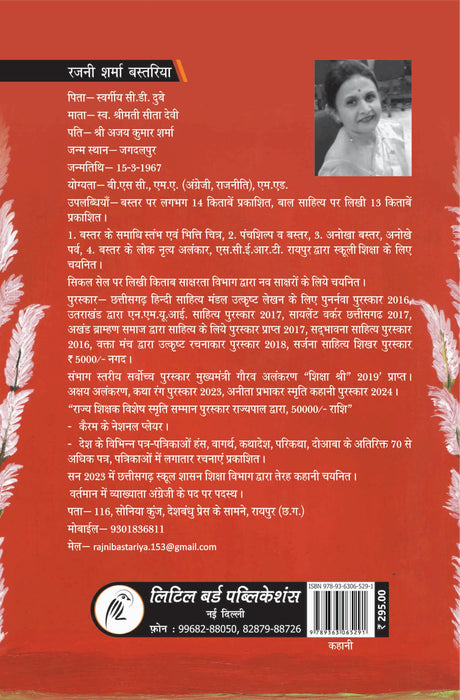 रजनी शर्मा बस्तरिया
पिता– स्वर्गीय सी.डी. दुबे
माता– स्व. श्रीमती सीता देवी
पति– श्री अजय कुमार शर्मा
जन्म स्थान– जगदलपुर
जन्मतिथि– 15-3-1967
योग्यता– बी.एस सी., एम.ए. (अंग्रेजी, राजनीति), एम.एड.
उपलब्धियाँ– बस्तर पर लगभग 14 किताबें प्रकाशित, बाल साहित्य पर लिखी 13 किताबें
प्रकाशित।
1. बस्तर के समाधि स्तंभ एवं भित्ति चित्र, 2. पंचशिल्प व बस्तर, 3. अनोखा बस्तर, अनोखे
पर्व, 4. बस्तर के लोक नृत्य अलंकार, एस.सी.ई.आर.टी. रायपुर द्वारा स्कूली शिक्षा के लिए
चयनित।
सिकल सेल पर लिखी किताब साक्षरता विभाग द्वारा नव साक्षरों के लिये चयनित।
पुरस्कार– छत्तीसगढ़ हिन्दी साहित्य मंडल उत्कृष्ट लेखन के लिए पुनर्नवा पुरस्कार 2016,
उतराखंड द्वारा एन.एम.यू.आई. साहित्य पुरस्कार 2017, सायलेंट वर्कर छत्तीसगढ 2017,
अखंड ब्राम्हण समाज द्वारा साहित्य के लिये पुरस्कार प्राप्त 2017, सद्भावना साहित्य पुरस्कार
2016, वक्ता मंच द्वारा उत्कृष्ट रचनाकार पुरस्कार 2018, सर्जना साहित्य शिखर पुरस्कार
₹ 5000/- नगद।
संभाग स्तरीय सर्वोच्च पुरस्कार मुख्यमंत्री गौरव अलंकरण "शिक्षा श्री" 2019' प्राप्त।
अक्षय अलंकरण, कथा रंग पुरस्कार 2023, अनीता प्रभाकर स्मृति कहानी पुरस्कार 2024।
"राज्य शिक्षक विशेष स्मृति सम्मान पुरस्कार राज्यपाल द्वारा, 50000/- राशि"
- कैरम के नेशनल प्लेयर।
- देश के विभिन्न पत्र-पत्रिकाओं हंस, वागर्थ, कथादेश, परिकथा, दोआबा के अतिरिक्त 70 से
अधिक पत्र, पत्रिकाओं में लगातार रचनाएं प्रकाशित।
सन 2023 में छत्तीसगढ़ स्कूल शासन शिक्षा विभाग द्वारा तेरह कहानी चयनित।
वर्तमान में व्याख्याता अंग्रेजी के पद पर पदस्थ।
पता– 116, सोनिया कुंज, देशबंधु प्रेस के सामने, रायपुर (छ.ग.)
मोबाईल– 9301836811
मेल– rajnibastariya.153@gmail.com
लिटिल बर्ड पब्लिकेशंस
नई दिल्ली
फ़ोन : 99682-88050, 82879-88726
ISBN 978-93-6306-529-1
9 789363 065291
₹ 295.00
कहानी